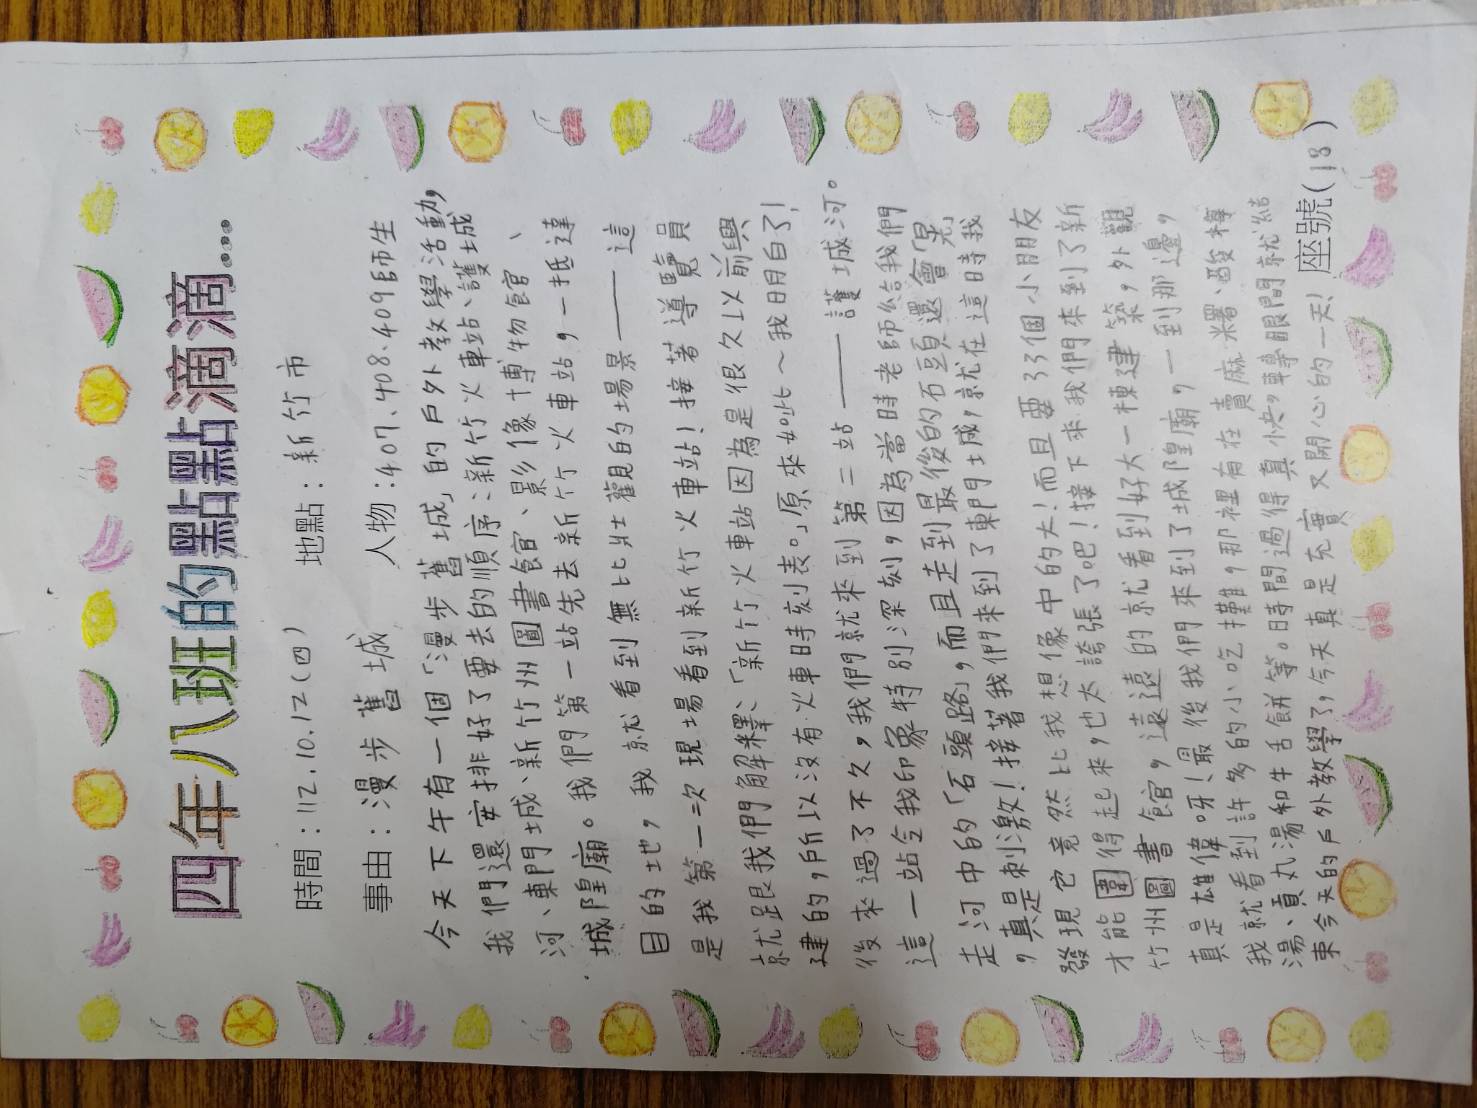 四年八班的點點滴滴....
時間：112.10.12(四)　地點：新竹市
事由：漫步舊城　人物：407、408.409師生
今天下午有一個「漫步舊城」的戶外教學活動，
我們還安排好了要去的順序：新竹火車站、護城
河、東門城、新竹州圖書館、影像博物館、
城隍廟。我們第一站先去新竹火車站，一抵達
目的地，我就看到無比壯觀的場景——這
是我第一次現場看到新竹火車站！接著導覽員
就跟我們解釋、「新竹火車站因為是很久以前興
建的，所以沒有火車時刻表。」原來如此～我明白了！
後來過了不久，我們就來到第二站——護城河。
這一站令我印象特別深刻，因為當時老師給我們
走河中的「石頭路」，而且走到最後的石頭還會「晃」
，真是刺激！接著我們來到了東門城，就在這時我
發現它竟然比我想像中的大！而且要33個小朋友
才能圍得起來，也太誇張了吧！接下來我們來到了新
竹州圖書館，遠遠的就看到好大一棟建築，外觀
真是雄偉呀！最後我們來到了城隍廟，一到那邊，
我就看到許多的小吃攤，那裡有在賣麻糬、酸梅
湯、貢丸湯和牛舌餅等。時間過得真快，轉眼間就結
束今天的戶外教學了，今天真是充實又開心的一天！
座號(18)